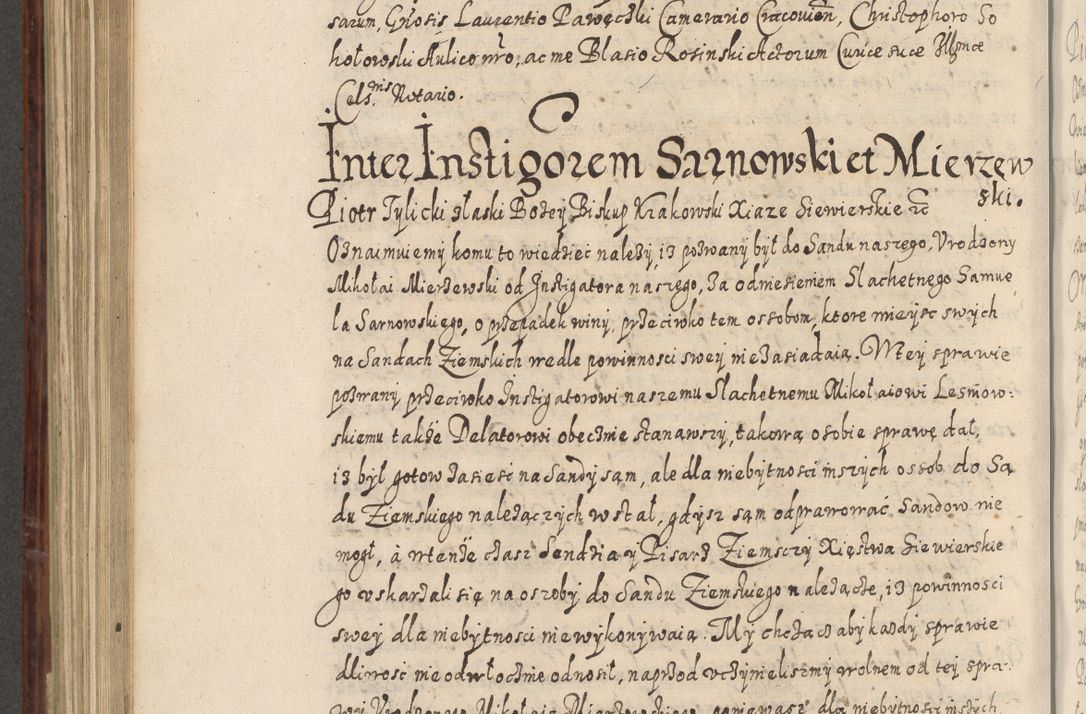 sarum, Gnosis Laurentio Pawęczki Camerario Cracovien, Christophoro So
hołowski Aulico nro, ac me Blasio Rosinski Actorum Curice suce Illgnce
Cels.nis Notario.
Inter Instigorem Sarnowski et Mierzew
ski.
Piotr Tylicki złaski Bozey Biskup Krakowski Xiaze Siewierskie rc
Oznaimuiemy komu to wiedziec nalezy, iz pozwany był do Sandu naszego, Vrodzony
Mikołai Mierzewski od Instigatora naszego, za odniesieniem Slachetnego Samue
la Sarnowskiego, o przepadek winy, przeciwko tem ossobom, ktore mieysc swych
na Sandach Ziemskich wedle powinnosci swey nie zasiadaią. W tey sprawie
pozwany przeciwko Instigatorowi naszemu Slachetnemu Mikołaiowi Lesniow:
skiemu także Delatorowi obecznie stanawszy, takową o sobie sprawę dał,
iz był gotow zasiesi na Sandy sąm, ale dla niebytnosci inszych ossob do Są
du Ziemskiego nalezączych wstał, gdysz sąm odprawować Sandow nie
mogł, à wtenże czasz Sendzia y Pisarz Ziemsczy Xięstwa Siewierskie
go vskarzali się na oszoby do Sandu Ziemskiego należącze, iz powinnosci
swey dla niebytnosci nie wykonywaią. My chcząc aby kazdy sprawie
dliwosc nieodwłocznie odnosił, naprzod vczynielismy wolnem od tey spra